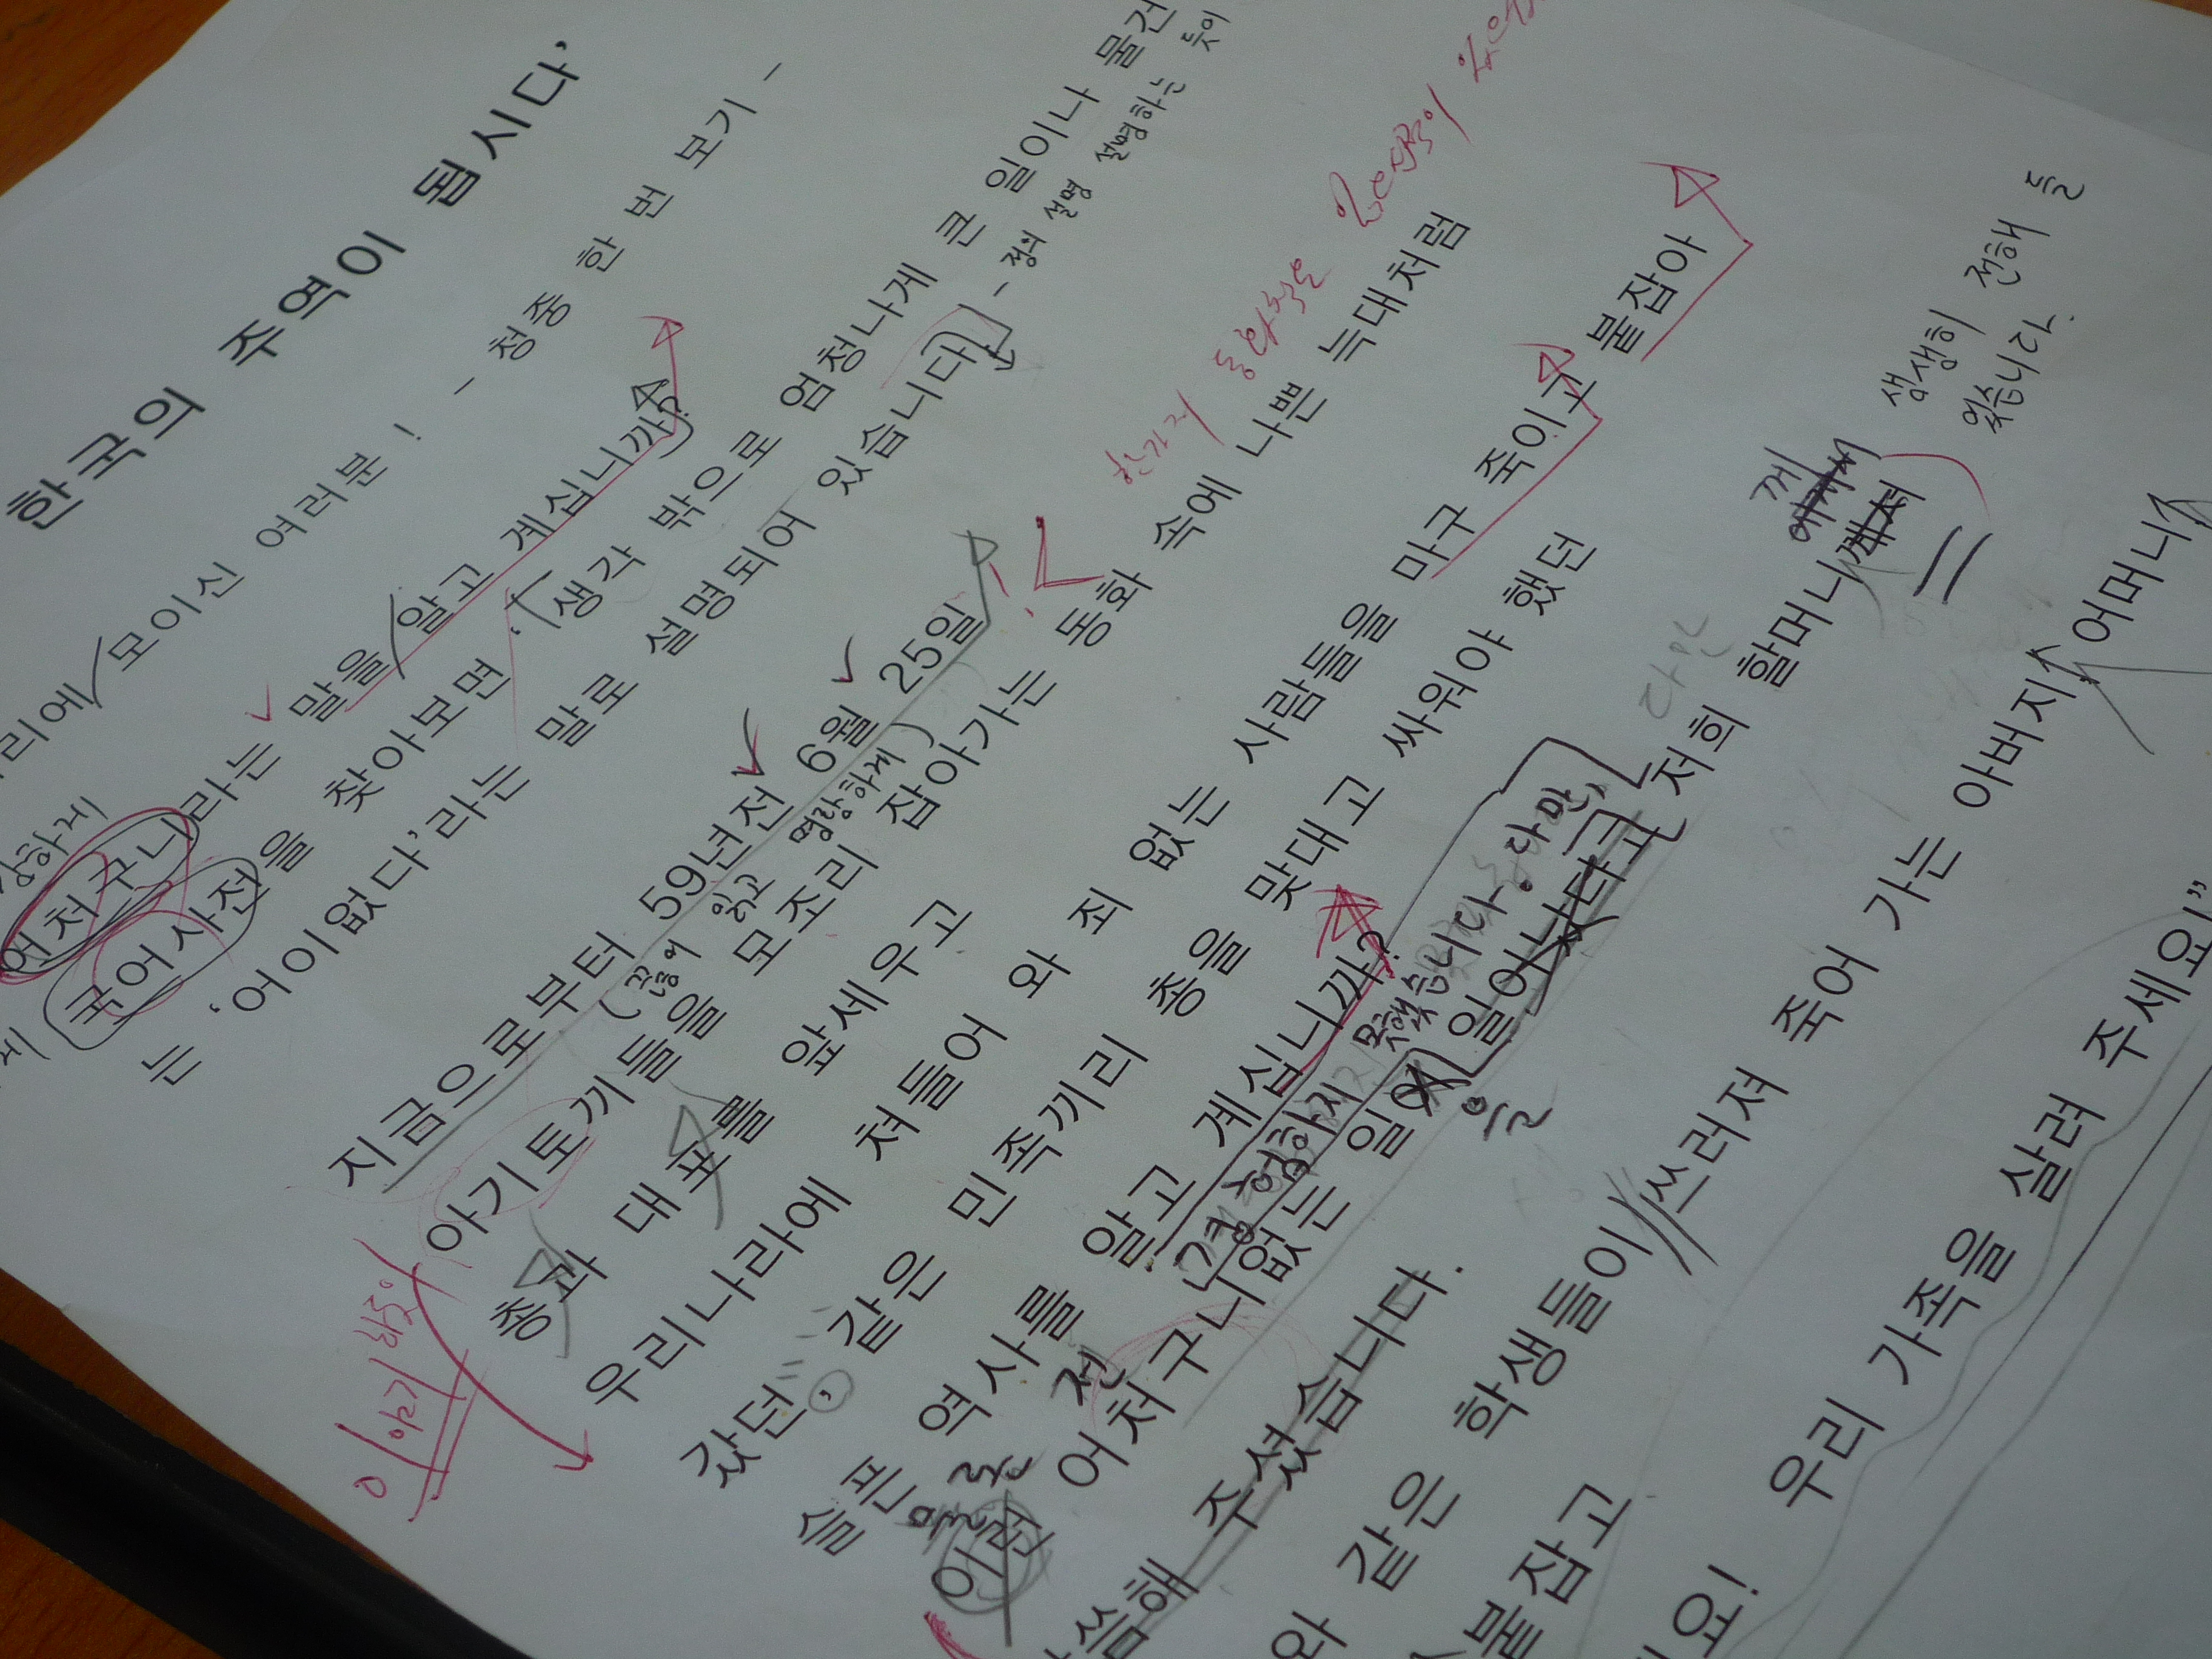 한국의 주역이 됩시다’
모이신 여러분 ! - 청중 한 번 보기 -
강하게
어처구니라는 말을 알고 계십니까?
국어사전을 찾아보면 ‘생각 밖으로 엄청나게 큰 일이나 물건
는 ‘어이없다’라는 말로 설명되어 있습니다. - 정의 설명 설명하는 듯이
지금으로부터 59년전 6월 25일
(끊어 읽고 명랑하게)
한가지 동화책은
이야기
아기토끼들을 모조리 잡아가는 동화 속에 나쁜 늑대처럼
총과 대포를 앞세우고
우리나라에 쳐들어 와 죄 없는 사람들을 마구 죽이고 붙잡아
갔던, 같은 민족끼리 총을 맞대고 싸워야 했던
슬픈 역사를 알고 계십니까?
물론 전 경험하지 못했습니다. 다만,
이런 어처구니없는 일이 일어났다고 저희 할머니께서
을
께
생생히 전해 듣
있습니다.
다만
씀해 주셨습니다.
와 같은 학생들이 쓰러져 죽어 가는 아버지, 어머니
붙잡고
요! 우리 가족을 살려 주세요”